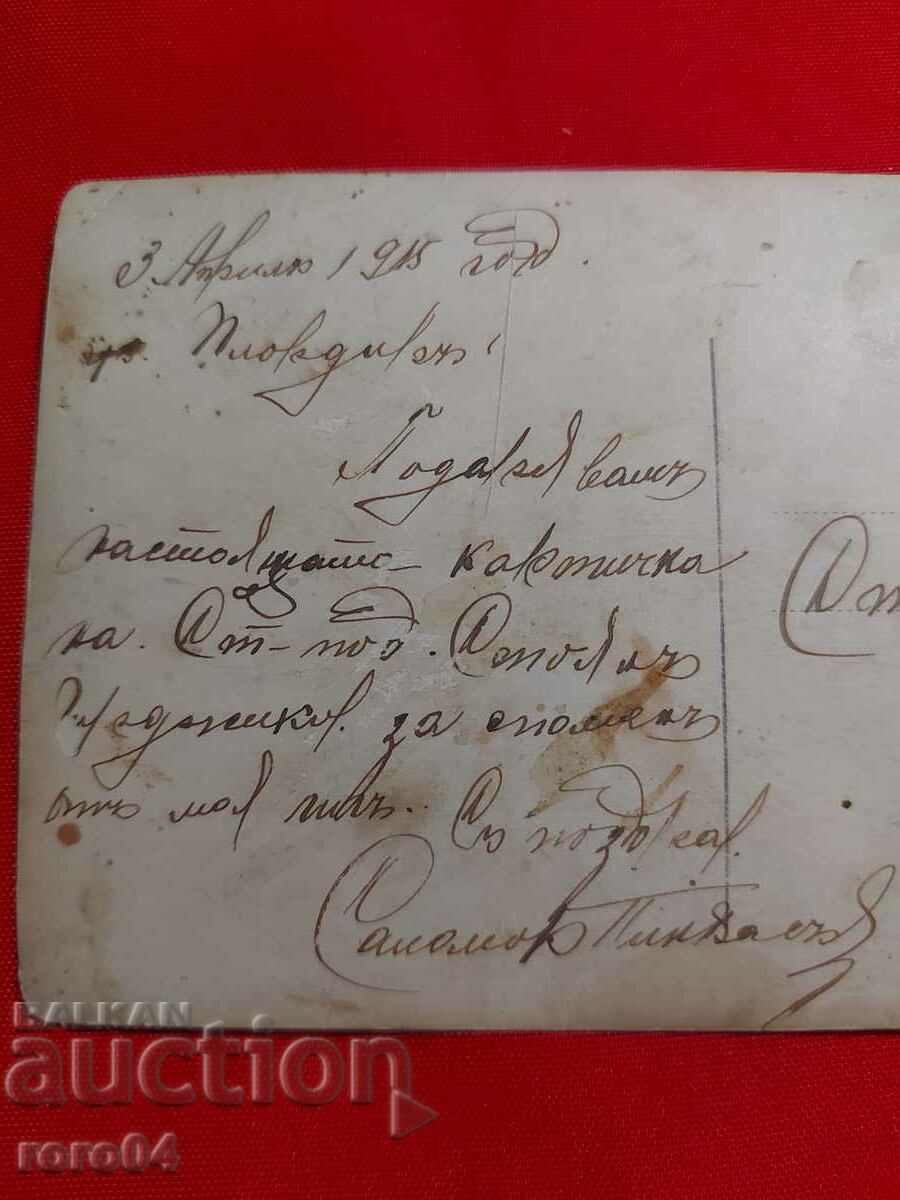 3 Априлъ 1915 год.
гр. Пловдивъ
Подарявамъ
настоящата картичка
на. Ст-под. Стоянъ
за споменъ
отъ моя ... Съ поздрав.
Саламон Пинкасъ
Ст
BALKAN
auction
roro04